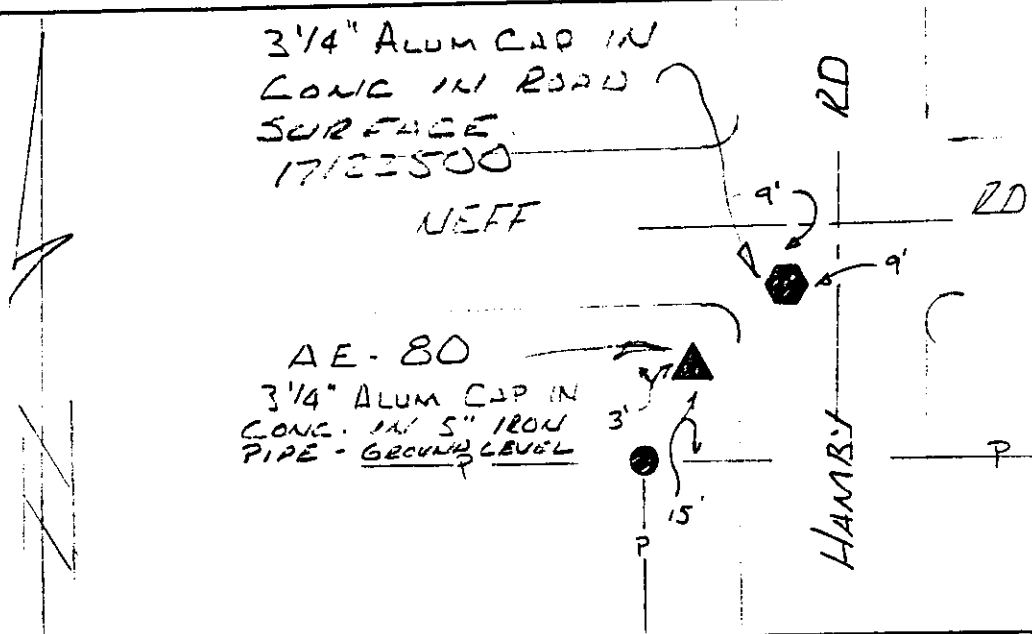 3 1/4" ALUM CAP IN
CONC IN ROAD
SURFACE
17122500
NEFF
RD
RD
9'
9'
AE-80
3 1/4" ALUM CAP IN
CONC. IN 5" IRON
PIPE - GROUND LEVEL
3'
15'
P
P
P
HAMBY
N